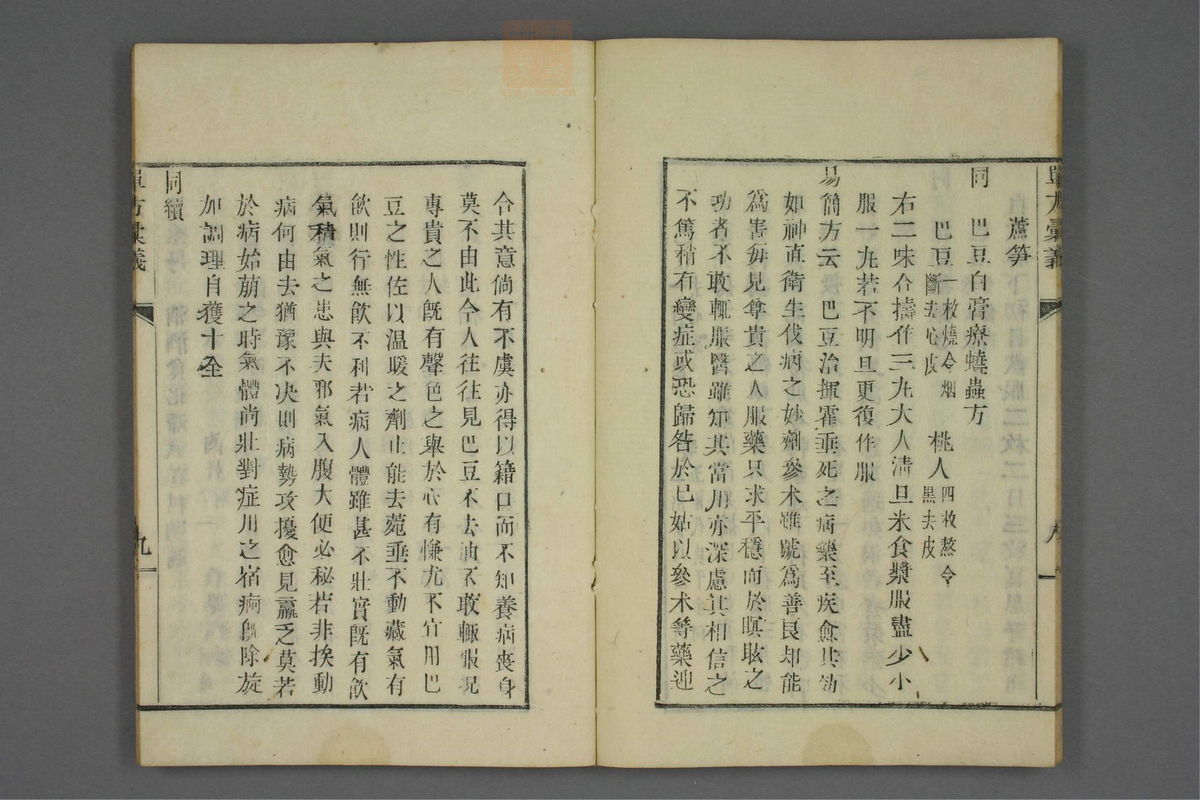 蘆筍
同　巴豆白膏療蟯蟲方
巴豆一枚燒令烟斷去心皮　桃人四枚熬令黑去皮
右二味合擣作三丸大人淸旦米食漿服盡少小
服一丸若不明旦更復作服
易簡方云　巴豆治揮霍垂死之病藥至疾愈其効
如神直衛生伐病之妙劑參术雖號爲善良却能
爲害每見尊貴之人服藥只求平穩而於瞑眩之
功者不敢輒服醫雖知其當用亦深慮其相信之
不篤稍有變症或恐歸咎於已姑以參术等藥迎
合其意倘有不虞亦得以籍口而不知養病喪身
莫不由此今人往往見巴豆不去油不敢輒服况
專貴之人旣有聲色之舉於心有慊尤不宜用巴
豆之性佐以温暖之劑止能去菀垂不動藏氣有
飮則行無飮不利若病人體雖甚不壯實旣有飮
氣積氣之患與夫邪氣入腹大便必秘若非挨動
病何由去猶豫不决則病勢攻擾愈見羸乏莫若
於病始萠之時氣體尚壯對症用之宿痾旣除旋
加調理自獲十全
同續
單方彙義
九